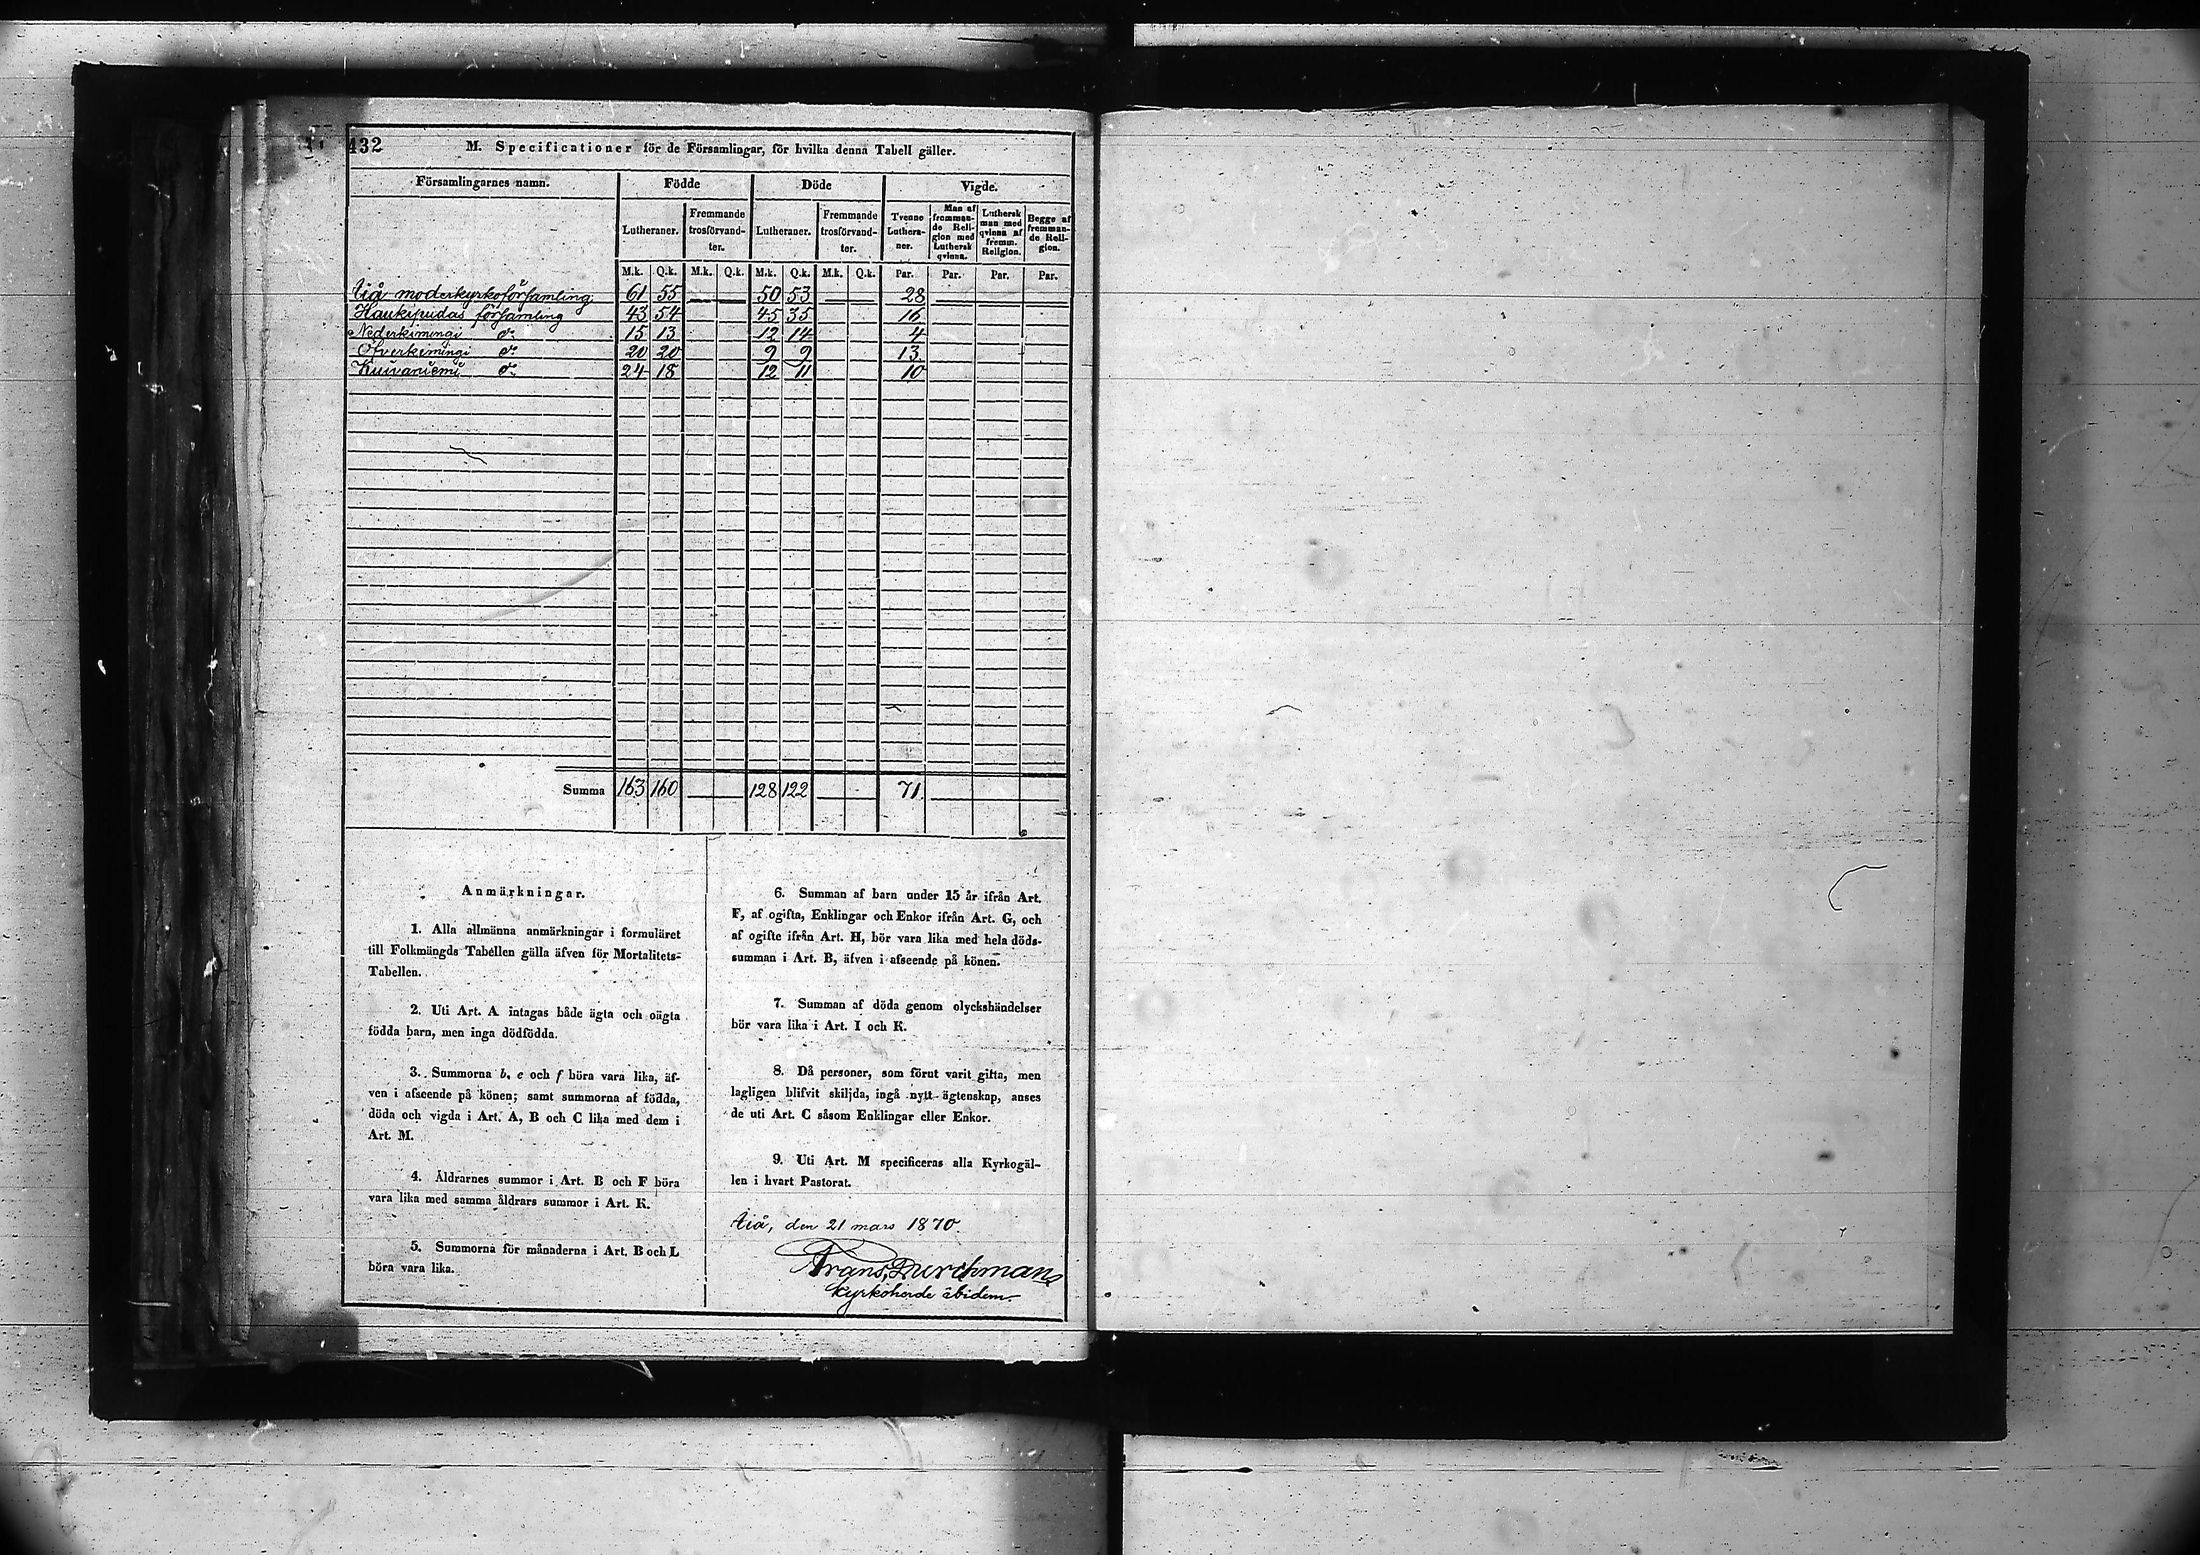 432
M. Specificationer för de Församlingar, för hvilka denna Tabell gäller.
Församlingarnes namn. Födde Döde Vigde.
Lutheraner. Fremmande trosförvand-ter. Lutheraner. Fremmande trosförvand-ter. Tvenne Luthera-ner. Man af fremman-de Reli-gion med Luthersk qvinna. Luthersk man med qvinna af fremm. Religion. Begge af fremman-de Reli-gion.
M.k. Q.k. M.k. Q.k. M.k. Q.k. M.k. Q.k. Par. Par. Par. Par.
Iiå moderkyrkoförsamling 61 55 — — 50 53 — — 28 — — —
Haukipudas församling 43 54 45 35 16
Nederkimingi do 15 13 12 14 4
Öfverkimingi do 20 20 9 9 13
Kuivaniemi do 24 18 12 11 10
Summa 163 160 — — 128 122 — — 71 — — —
Anmärkningar.
1. Alla allmänna anmärkningar i formuläret
till Folkmängds Tabellen gälla äfven för Mortalitets-
Tabellen.
2. Uti Art. A intagas både ägta och oägta
födda barn, men inga dödfödda.
3. Summorna b, e och f böra vara lika, äf-
ven i afseende på könen; samt summorna af födda,
döda och vigda i Art. A, B och C lika med dem i
Art. M.
4. Åldrarnes summor i Art. B och F böra
vara lika med samma åldrars summor i Art. K.
5. Summorna för månaderna i Art. B och L
böra vara lika.
6. Summan af barn under 15 år ifrån Art.
F, af ogifta, Enklingar och Enkor ifrån Art. G, och
af ogifte ifrån Art. H, bör vara lika med hela döds-
summan i Art. B, äfven i afseende på könen.
7. Summan af döda genom olyckshändelser
bör vara lika i Art. I och K.
8. Då personer, som förut varit gifta, men
lagligen blifvit skiljda, ingå nytt ägtenskap, anses
de uti Art. C såsom Enklingar eller Enkor.
9. Uti Art. M specificeras alla Kyrkogäl-
len i hvart Pastorat.
Iiå, den 21 mars 1870.
Frans Durchman
Kyrkoherde ibidem.